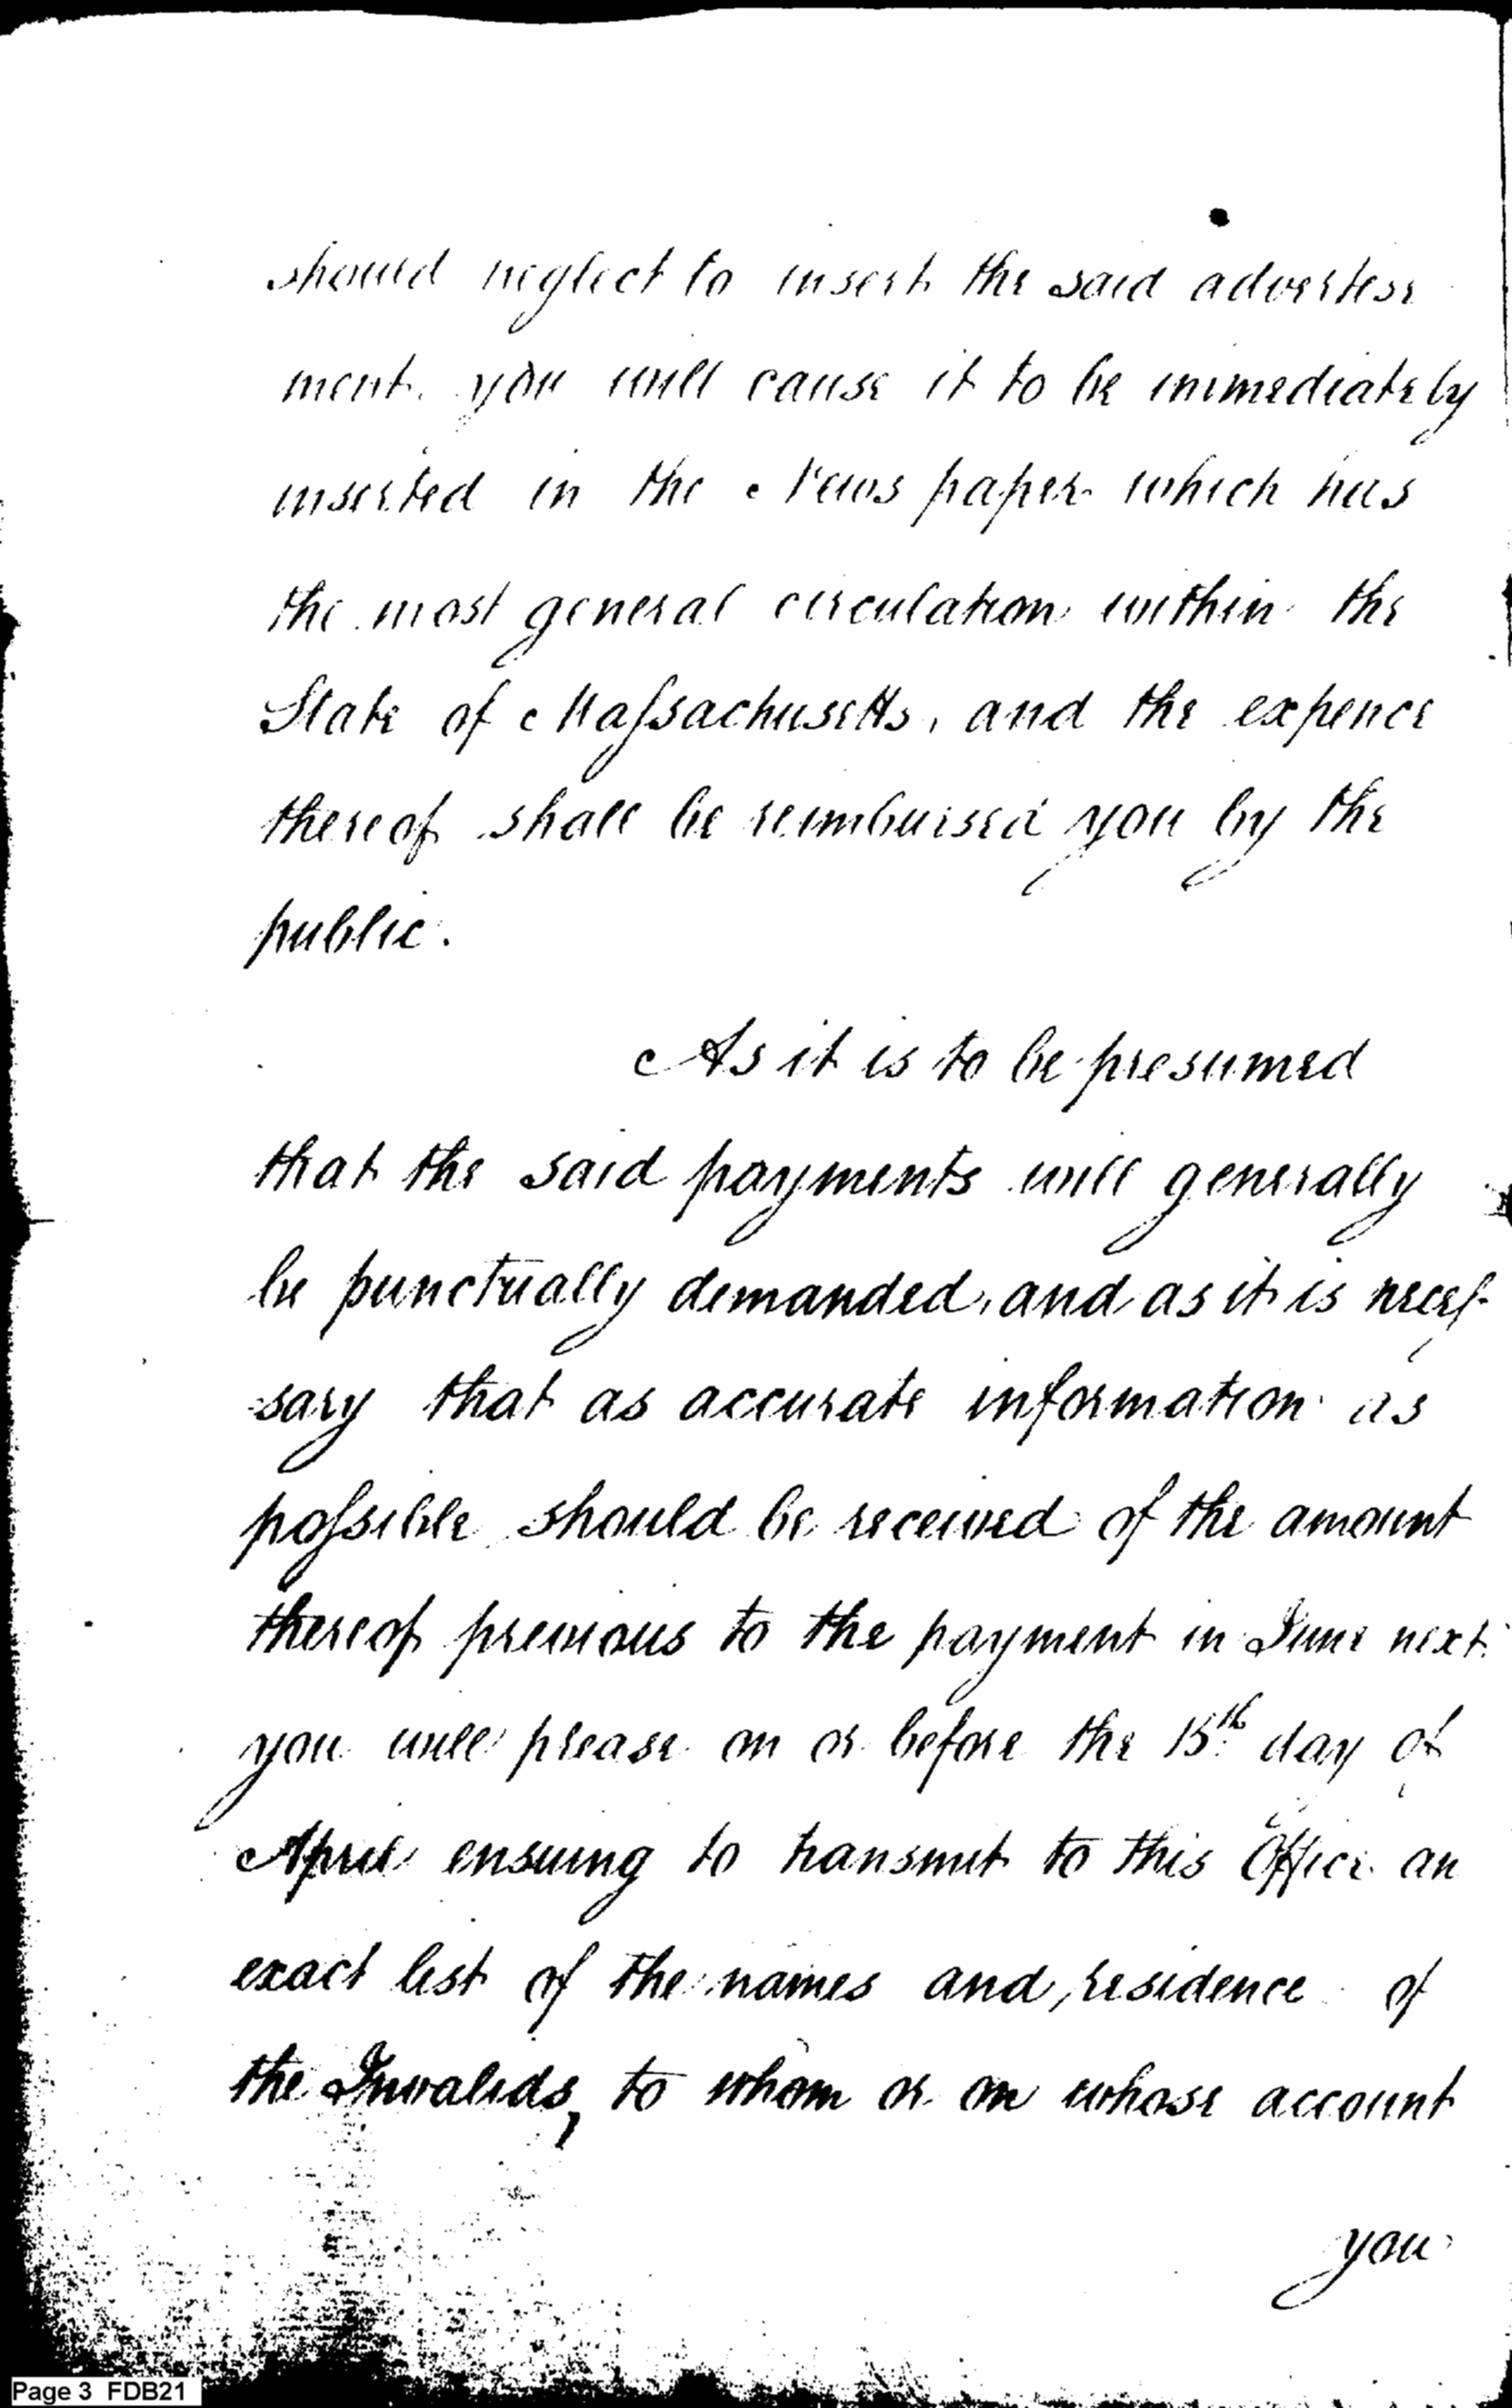 should neglect to insert the said advertise
ment. you will cause it to be immediately
inserted in the News paper which has
the most general circulation within the
State of Maſsachusetts, and the expence
thereof shall be reimbursed you by the
public.
As it is to be presumed
that the said payments will generally
be punctually demanded, and as it is neceſ-
-sary that as accurate information as
poſsible should be received of the amount
thereof previous to the payment in June next.
you will please on or before the 15th day of
April ensuing to transmit to this Office an
exact list of the names and residence of
the Invalids, to whom or on whose account
you
Page 3 FDB21